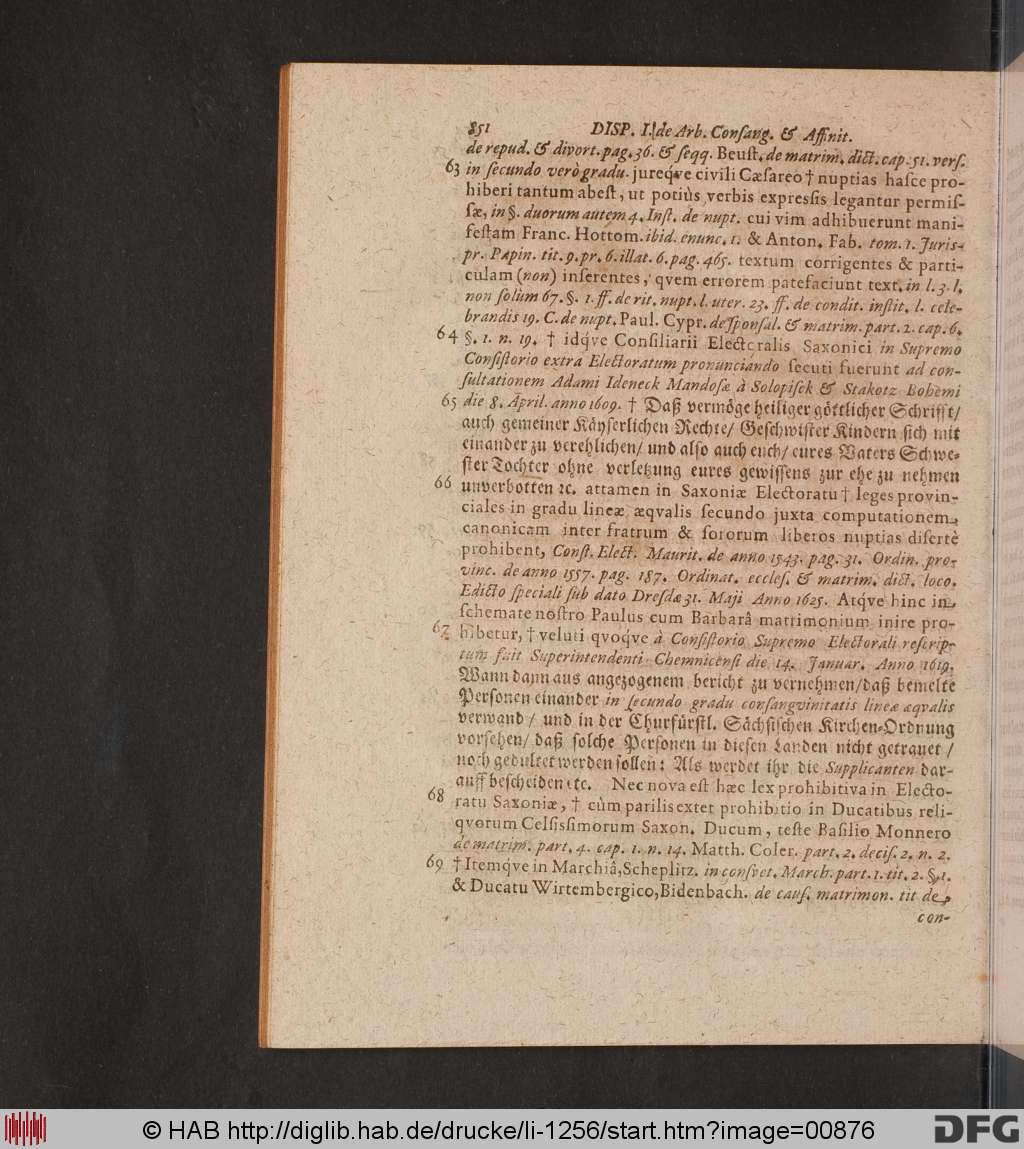 851 DISP. I. de Arb. Consang. & Affinit.
de repud. & divort. pag. 36. & seqq. Beust. de matrim. dict. cap. 51. vers.
63 in secundo verò gradu. jureqve civili Cæsareo † nuptias hasce pro-
hiberi tantum abest, ut potiùs verbis expressis legantur permis-
sæ, in §. duorum autem 4. Inst. de nupt. cui vim adhibuerunt mani-
festam Franc. Hottom. ibid. enunc. 1. & Anton. Fab. tom. 1. Juris-
pr. Papin. tit. 9. pr. 6. illat. 6. pag. 465. textum corrigentes & parti-
culam (non) inserentes, qvem errorem patefaciunt text. in l. 3. l.
non solùm 67. §. 1. ff. de rit. nupt. l. uter. 23. ff. de condit. instit. l. cele-
brandis 19. C. de nupt. Paul. Cypr. de sponsal. & matrim. part. 2. cap. 6.
64 §. 1. n. 19. † idq́ve Consiliarii Electoralis Saxonici in Supremo
Consistorio extra Electoratum pronunciando secuti fuerunt ad con-
sultationem Adami Ideneck Mandosæ à Solopisek & Stakotz Bohemi
65 die 8. April. anno 1609. † Daß vermöge heiliger göttlicher Schrifft/
auch gemeiner Käyserlichen Rechte/ Geschwister Kindern sich mit
einander zu verehlichen/ und also auch euch/ eures Vaters Schwe-
ster Tochter ohne verletzung eures gewissens zur ehe zu nehmen
66 unverbotten ꝛc. attamen in Saxoniæ Electoratu † leges provin-
ciales in gradu lineæ æqvalis secundo juxta computationem
canonicam inter fratrum & sororum liberos nuptias disertè
prohibent, Const. Elect. Maurit. de anno 1543. pag. 31. Ordin. pro-
vinc. de anno 1557. pag. 187. Ordinat. eccles. & matrim. dict. loco.
Edicto speciali sub dato Dresdæ 31. Maji Anno 1625. Atqve hinc in
schemate nostro Paulus cum Barbarâ matrimonium inire pro-
67 hibetur, † veluti qvoq́ve à Consistorio Supremo Electorali rescrip-
tum fuit Superintendenti Chemnicensi die 14. Januar. Anno 1619.
Wann dann aus angezogenem bericht zu vernehmen/ daß bemelte
Personen einander in secundo gradu consangvinitatis lineæ æqvalis
verwand/ und in der Churfürstl. Sächsischen Kirchen-Ordnung
vorsehen/ daß solche Personen in diesen Landen nicht getrauet /
noch gedultet werden sollen: Als werdet ihr die Supplicanten dar-
auff bescheiden etc. Nec nova est hæc lex prohibitiva in Electo-
68 ratu Saxoniæ, † cùm parilis extet prohibitio in Ducatibus reli-
qvorum Celsissimorum Saxon. Ducum, teste Basilio Monnero
de matrim. part. 4. cap. 1. n. 14. Matth. Coler. part. 2. decis. 2. n. 2.
69 † Itemq́ve in Marchiâ, Scheplitz. in consvet. March. part. 1. tit. 2. §. 1.
& Ducatu Wirtembergico, Bidenbach. de caus. matrimon. tit de
con-
© HAB http://diglib.hab.de/drucke/li-1256/start.htm?image=00876
DFG